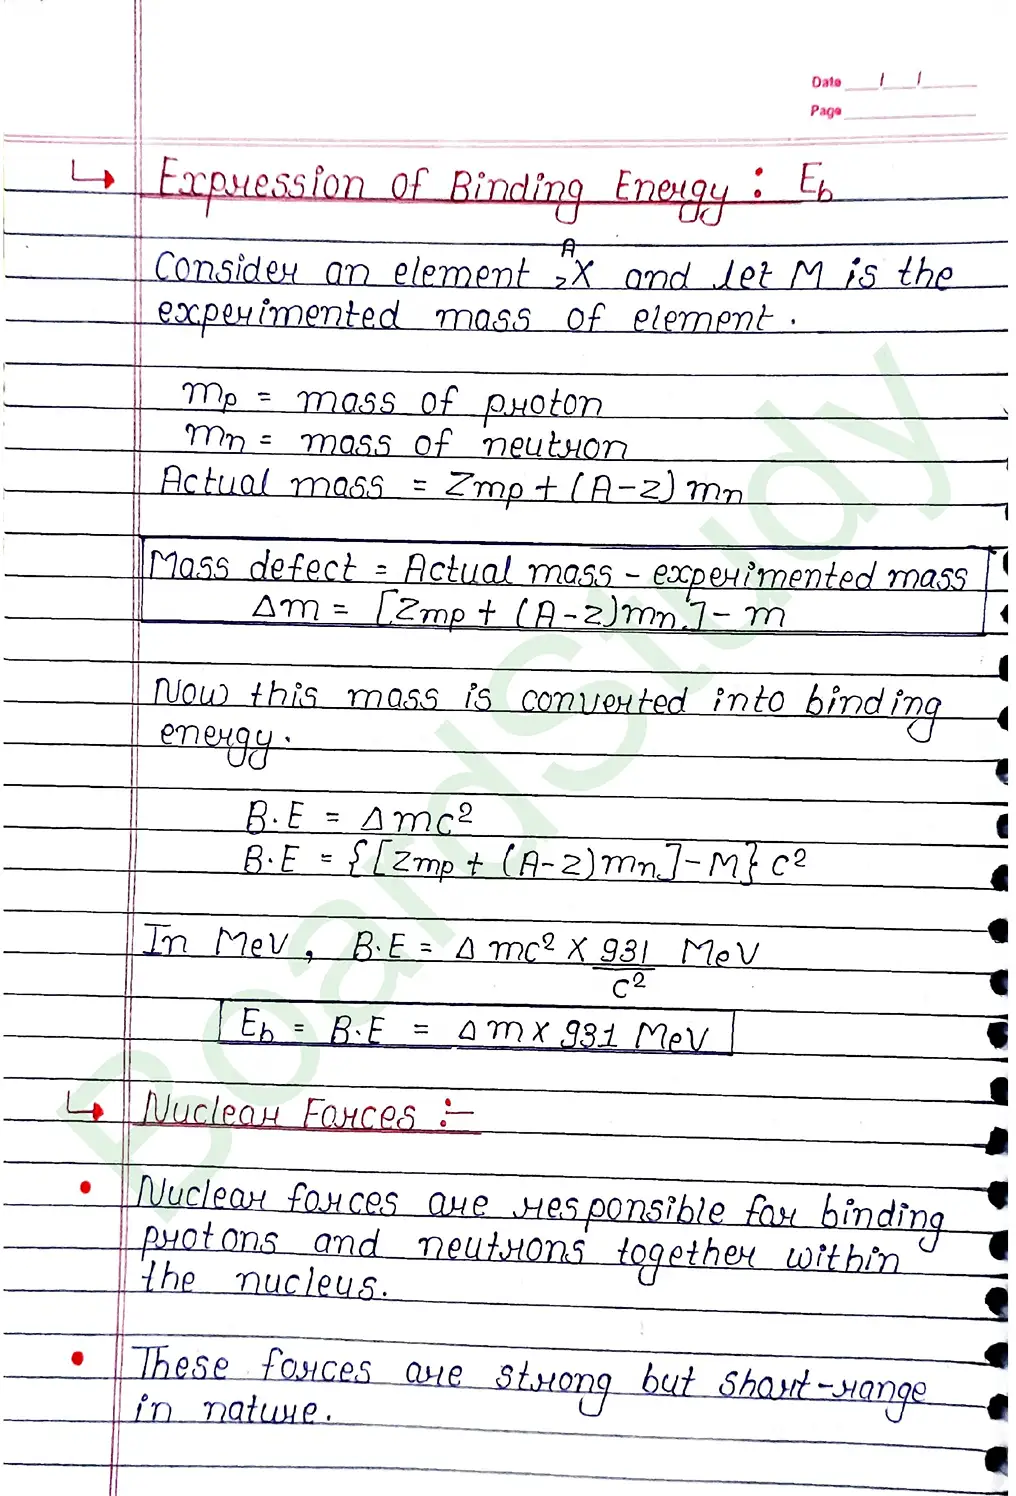 Date / /
Page
↳ Expression of Binding Energy : E_b
Consider an element ᴬ_zX and let M is the
experimented mass of element.
mp = mass of proton
mn = mass of neutron
Actual mass = Zmp + (A-Z) mn
Mass defect = Actual mass - experimented mass
Δm = [Zmp + (A-Z)mn] - m
Now this mass is converted into binding
energy.
B.E = Δmc²
B.E = {[Zmp + (A-Z)mn] - M} c²
In MeV, B.E = Δmc² × 931/c² MeV
E_b = B.E = Δm × 931 MeV
↳ Nuclear Forces :-
• Nuclear forces are responsible for binding
protons and neutrons together within
the nucleus.
• These forces are strong but short-range
in nature.
BoardStudy